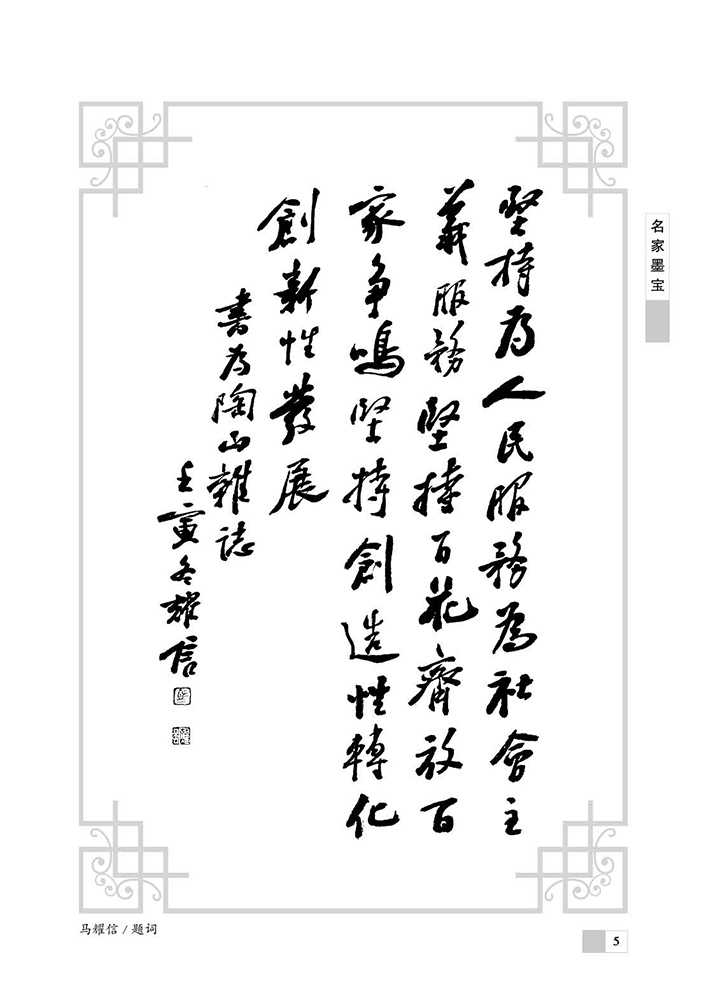 堅持为人民服務為社會主
義服務堅持百花齊放百
家争鳴堅持創造性轉化
創新性發展
書为陶山雜誌
壬寅冬耀信
名家墨宝
马耀信 / 题词
5